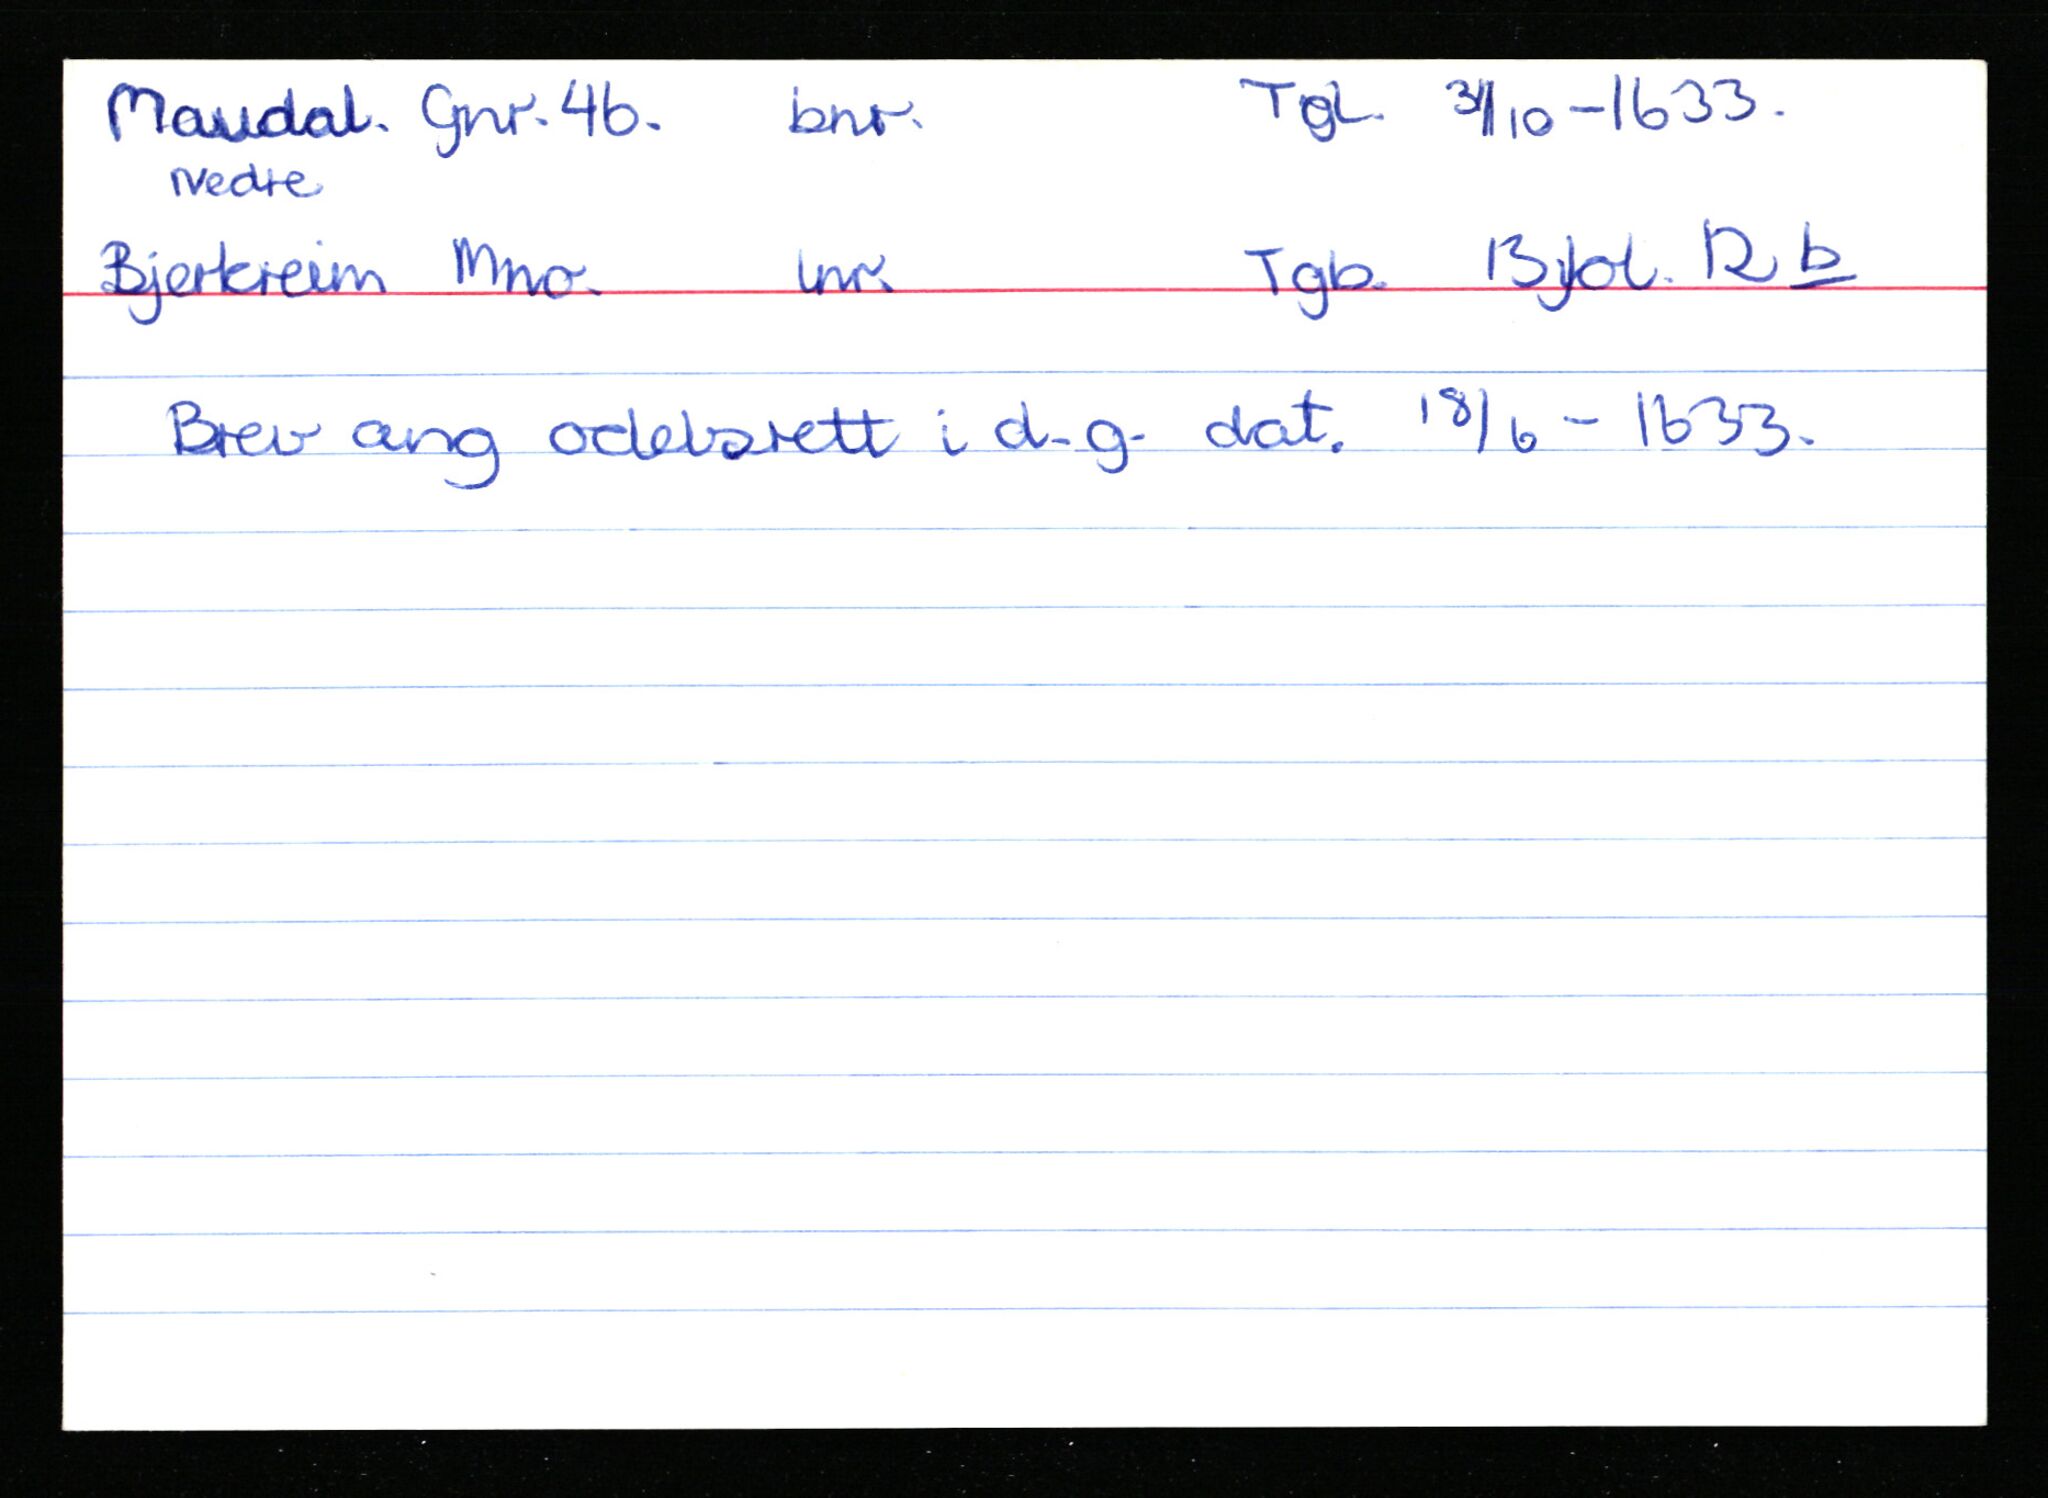 Maudal. Gnr. 46. bnr. Tgl. 31/10 - 1633.
Nedre
Bjerkreim Mno. lnr. Tgb. 13 fol. 12 b
Brev ang odelsrett i d. g. dat. 18/6 - 1633.